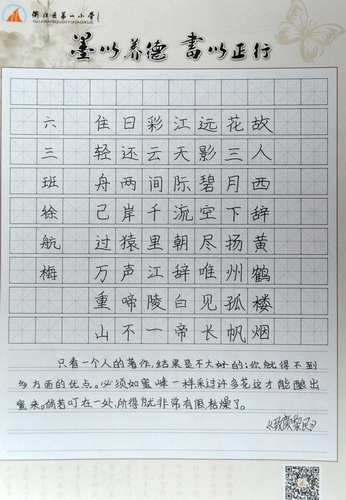 衢江区第一小学
QUJIANGQUDIYIXIAOXUE
墨以养德 書以正行
故人西辞黄鹤楼烟
花三月下扬州孤帆
远影碧空尽唯见长
江天际流朝辞白帝
彩云间千里江陵一
日还两岸猿声啼不
住轻舟己过万重山
六三班徐航梅
只看一个人的著作,结果是不大好的:你就得不到
多方面的优点。必须如蜜蜂一样采过许多花这才能酿出
蜜来。倘若叮在一处,所得就非常有限,枯燥了。
《致颜黎民》